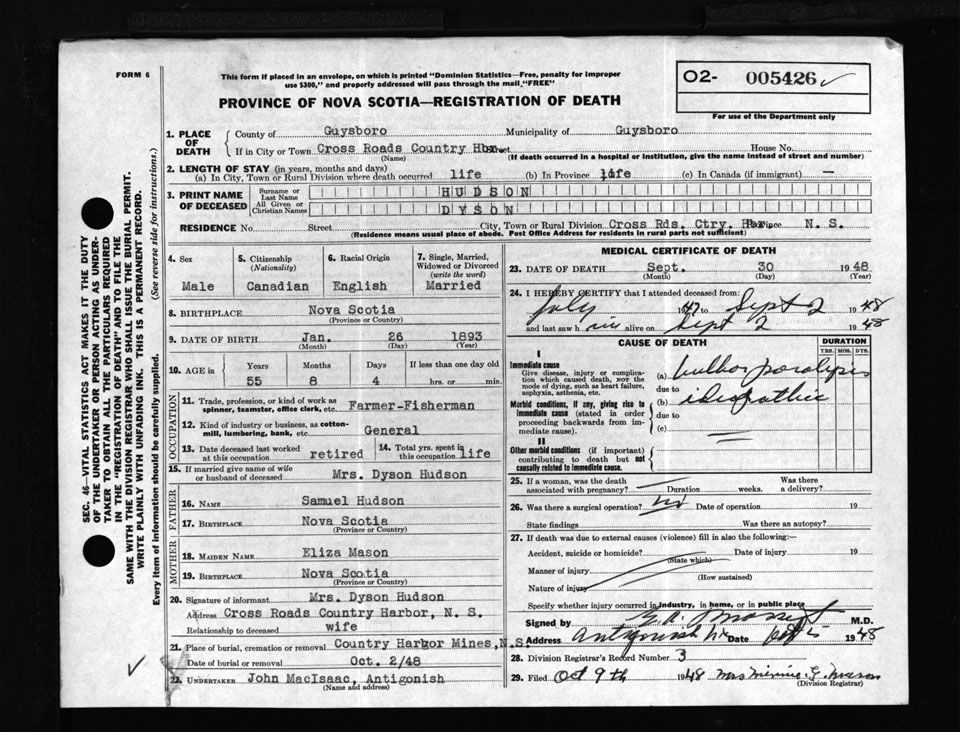 FORM 6
This form if placed in an envelope, on which is printed "Dominion Statistics—Free, penalty for improper
use $300," and properly addressed will pass through the mail "FREE"
PROVINCE OF NOVA SCOTIA—REGISTRATION OF DEATH
O2- 005426
For use of the Department only
SEC. 46—VITAL STATISTICS ACT MAKES IT THE DUTY
OF THE UNDERTAKER OR PERSON ACTING AS UNDER-
TAKER TO OBTAIN ALL THE PARTICULARS REQUIRED
IN THE "REGISTRATION OF DEATH" AND TO FILE THE
SAME WITH THE DIVISION REGISTRAR WHO SHALL ISSUE THE BURIAL PERMIT.
WRITE PLAINLY WITH UNFADING INK. THIS IS A PERMANENT RECORD.
Every item of information should be carefully supplied. (See reverse side for instructions.)
1. PLACE OF DEATH
County of Guysboro Municipality of Guysboro
If in City or Town Cross Roads Country Hbr. Street House No.
(Name) (If death occurred in a hospital or institution, give the name instead of street and number)
2. LENGTH OF STAY (in years, months and days)
(a) In City, Town or Rural Division where death occurred life (b) In Province life (c) In Canada (if immigrant) —
3. PRINT NAME OF DECEASED
Surname or Last Name HUDSON
All Given or Christian Names DYSON
RESIDENCE No. Street City, Town or Rural Division Cross Rds. Ctry. Hbr. Province N. S.
(Residence means usual place of abode. Post Office Address for residents in rural parts not sufficient)
4. Sex Male
5. Citizenship (Nationality) Canadian
6. Racial Origin English
7. Single, Married, Widowed or Divorced (write the word) Married
8. BIRTHPLACE Nova Scotia
(Province or Country)
9. DATE OF BIRTH Jan. 26 1893
(Month) (Day) (Year)
10. AGE in Years Months Days If less than one day old
55 8 4 hrs. or min.
OCCUPATION
11. Trade, profession, or kind of work as
spinner, teamster, office clerk, etc. Farmer-Fisherman
12. Kind of industry or business, as cotton-
mill, lumbering, bank, etc. General
13. Date deceased last worked at this occupation retired
14. Total yrs. spent in this occupation life
15. If married give name of wife
or husband of deceased Mrs. Dyson Hudson
FATHER
16. NAME Samuel Hudson
17. BIRTHPLACE Nova Scotia
(Province or Country)
MOTHER
18. MAIDEN NAME Eliza Mason
19. BIRTHPLACE Nova Scotia
(Province or Country)
20. Signature of informant Mrs. Dyson Hudson
Address Cross Roads Country Harbor, N. S.
Relationship to deceased wife
21. Place of burial, cremation or removal Country Harbor Mines, N.S.
Date of burial or removal Oct. 2/48
22. UNDERTAKER John MacIsaac, Antigonish
(Name and address)
MEDICAL CERTIFICATE OF DEATH
23. DATE OF DEATH Sept. 30 1948
(Month) (Day) (Year)
24. I HEREBY CERTIFY that I attended deceased from:
July 1947 to Sept 2 1948
and last saw him alive on Sept 2 1948
CAUSE OF DEATH
DURATION
YRS. MOS. DYS.
I
Immediate cause
Give disease, injury or complica-
tion which caused death, not the
mode of dying, such as heart failure,
asphyxia, asthenia, etc.
(a) bulbar paralysis
due to
Morbid conditions, if any, giving rise to
immediate cause (stated in order
proceeding backwards from im-
mediate cause).
(b) idiopathic
due to
(c)
II
Other morbid conditions (if important)
contributing to death but not
causally related to immediate cause.
25. If a woman, was the death
associated with pregnancy? Duration weeks. Was there
a delivery?
26. Was there a surgical operation? no Date of operation 19
State findings Was there an autopsy?
27. If death was due to external causes (violence) fill in also the following:—
Accident, suicide or homicide? Date of injury 19
(State which)
Manner of injury
(How sustained)
Nature of injury
Specify whether injury occurred in industry, in home, or in public place
Signed by M.D.
Address Antigonish N.S. Date 1948
28. Division Registrar's Record Number 3
29. Filed Oct 9th 1948 Mrs Minnie E. Mason
(Division Registrar)